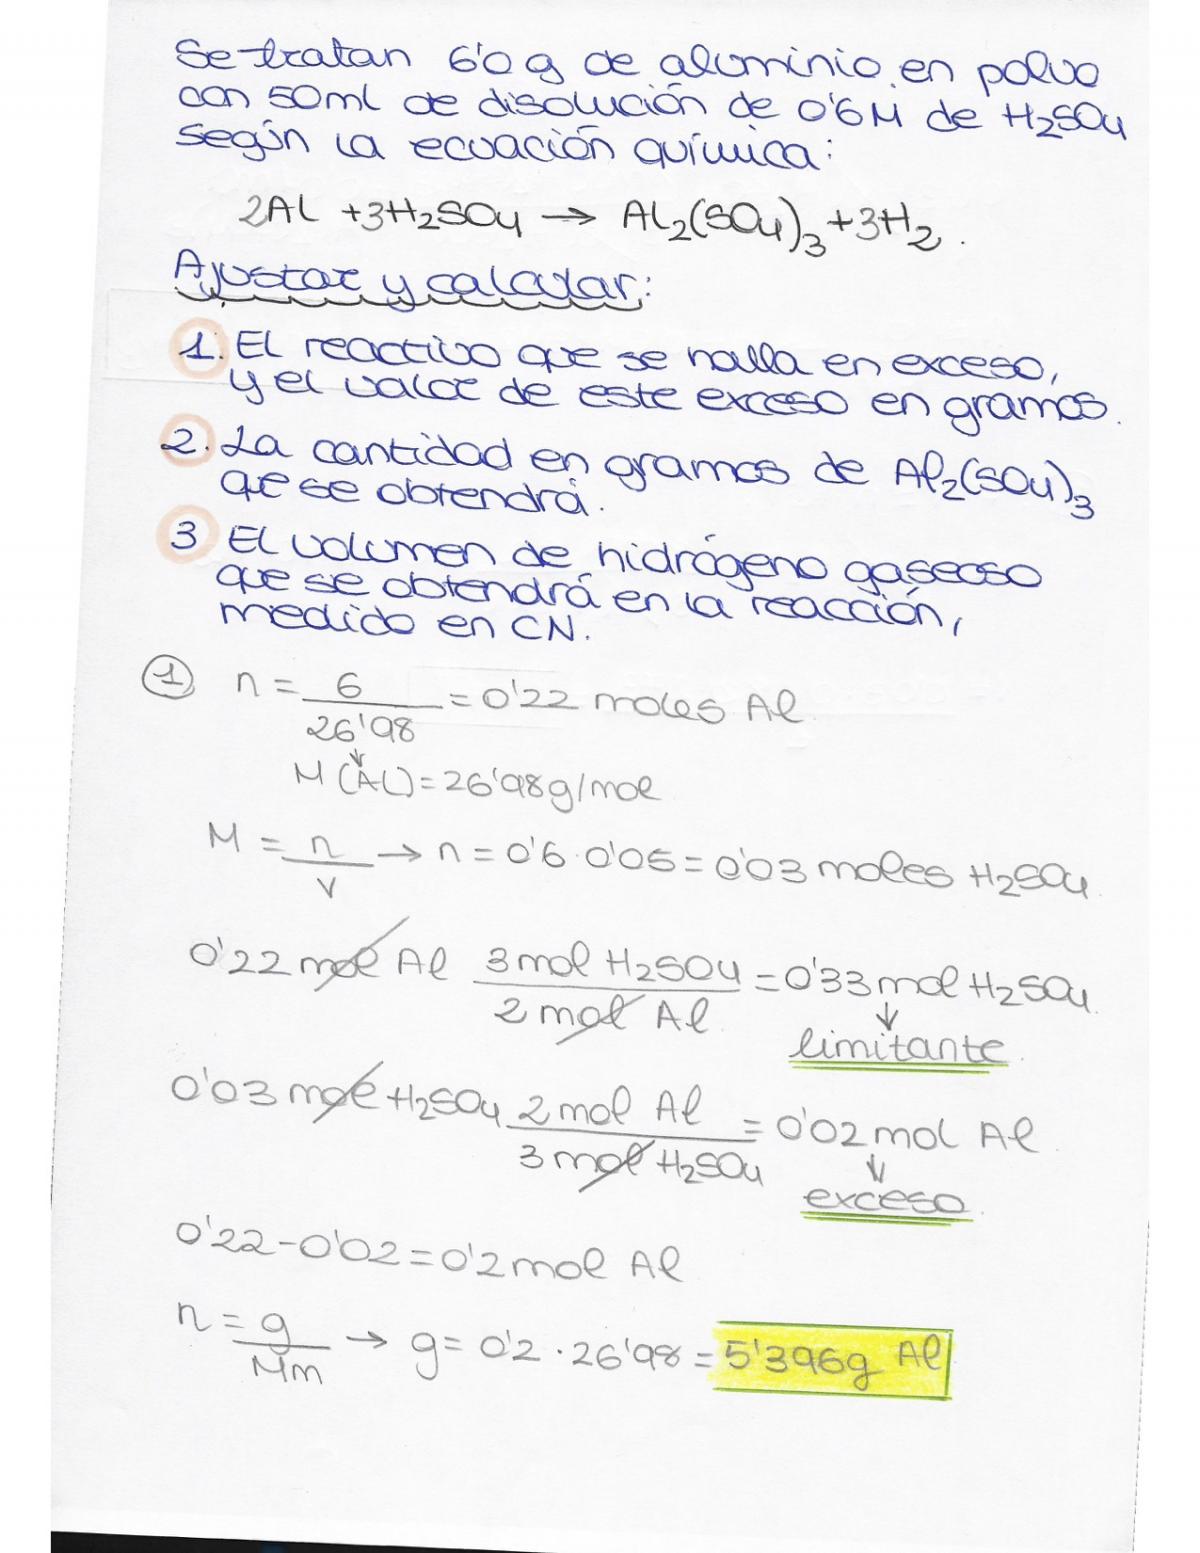 Se tratan 6'0 g de aluminio en polvo
con 50ml de disolución de 0'6M de H₂SO₄
según la ecuación química:
2Al + 3H₂SO₄ → Al₂(SO₄)₃ + 3H₂.
Ajustar y calcular:
1. El reactivo que se halla en exceso,
y el valor de este exceso en gramos.
2. La cantidad en gramos de Al₂(SO₄)₃
que se obtendrá.
3 El volumen de hidrógeno gaseoso
que se obtendrá en la reacción,
medido en CN.
1 n = 6/26'98 = 0'22 moles Al
M (Al) = 26'98g/mol
M = n/V → n = 0'6 · 0'05 = 0'03 moles H₂SO₄
0'22 mol Al 3 mol H₂SO₄/2 mol Al = 0'33 mol H₂SO₄
↓
limitante
0'03 mol H₂SO₄ 2 mol Al/3 mol H₂SO₄ = 0'02 mol Al
↓
exceso
0'22 - 0'02 = 0'2 mol Al
n = g/Mm → g = 0'2 · 26'98 = 5'396g Al